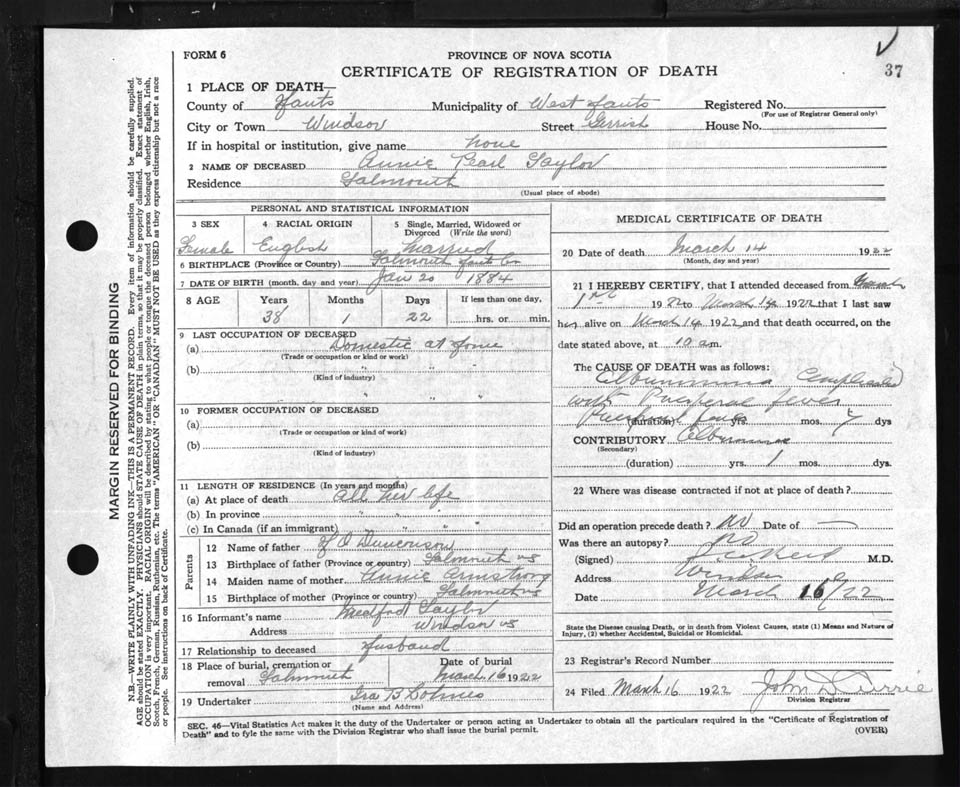 FORM 6
PROVINCE OF NOVA SCOTIA
CERTIFICATE OF REGISTRATION OF DEATH
37
1 PLACE OF DEATH—
County of Hants Municipality of West Hants Registered No.
(For use of Registrar General only)
City or Town Windsor Street Gerrish House No.
If in hospital or institution, give name None
2 NAME OF DECEASED Annie Pearl Taylor
Residence Falmouth
(Usual place of abode)
PERSONAL AND STATISTICAL INFORMATION
3 SEX 4 RACIAL ORIGIN 5 Single, Married, Widowed or Divorced (Write the word)
Female English Married
6 BIRTHPLACE (Province or Country) Falmouth Hants Co
7 DATE OF BIRTH (month, day and year) Jan 20 1884
8 AGE Years Months Days If less than one day,
38 1 22 hrs. or min.
9 LAST OCCUPATION OF DECEASED
(a) Domestic at Home
(Trade or occupation or kind or work)
(b) " "
(Kind of industry)
10 FORMER OCCUPATION OF DECEASED
(a)
(Trade or occupation or kind of work)
(b)
(Kind of industry)
11 LENGTH OF RESIDENCE (In years and months)
(a) At place of death All her life
(b) In province " " "
(c) In Canada (if an immigrant) " " "
Parents
12 Name of father
13 Birthplace of father (Province or country) Falmouth NS
14 Maiden name of mother Annie Armstrong
15 Birthplace of mother (Province or country) Falmouth NS
16 Informant's name Medford Taylor
Address Windsor NS
17 Relationship to deceased Husband
18 Place of burial, cremation or removal Falmouth Date of burial March 16 1922
19 Undertaker Ira B
(Name and Address)
MEDICAL CERTIFICATE OF DEATH
20 Date of death March 14 1922
(Month, day and year)
21 I HEREBY CERTIFY, that I attended deceased from March
1st 1922 to March 14 1922 that I last saw
her alive on March 14 1922 and that death occurred, on the
date stated above, at 10 am.
The CAUSE OF DEATH was as follows:
Complicated
with Puerperal fever
(duration) yrs. mos. 7 dys
CONTRIBUTORY
(Secondary)
(duration) yrs. 1 mos. dys.
22 Where was disease contracted if not at place of death?
Did an operation precede death? No Date of —
Was there an autopsy? No
(Signed) M.D.
Address Windsor
Date March 16/22
State the Disease causing Death, or in death from Violent Causes, state (1) Means and Nature of
Injury, (2) whether Accidental, Suicidal or Homicidal.
23 Registrar's Record Number
24 Filed March 16 1922 John D Currie
Division Registrar
SEC. 46—Vital Statistics Act makes it the duty of the Undertaker or person acting as Undertaker to obtain all the particulars required in the "Certificate of Registration of
Death" and to fyle the same with the Division Registrar who shall issue the burial permit. (OVER)
MARGIN RESERVED FOR BINDING
N.B.—WRITE PLAINLY WITH UNFADING INK—THIS IS A PERMANENT RECORD. Every item of information should be carefully supplied.
AGE should be stated EXACTLY. PHYSICIANS should STATE CAUSE OF DEATH in plain terms, so that it may be properly classified. Exact statement of
OCCUPATION is very important. RACIAL ORIGIN will be described by stating to what people or tongue the deceased person belonged whether English, Irish,
Scotch, French, German, Russian, Ruthenian, etc. The terms "AMERICAN" OR "CANADIAN" MUST NOT BE USED as they express citizenship but not a race
or people. See instructions on back of Certificate.